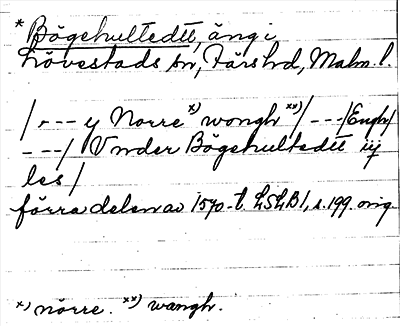 * Bögehultedtt, äng i
Lövestads sn, Färs hd, Malm. l.
/ --- y Norre x) wongh xx) / --- /Engh/
--- / Vnder Bögehultedtt iij
les /
förra delen av 1570-t. LSLB 1, s. 199. orig.
x) nörre. xx) wangh.